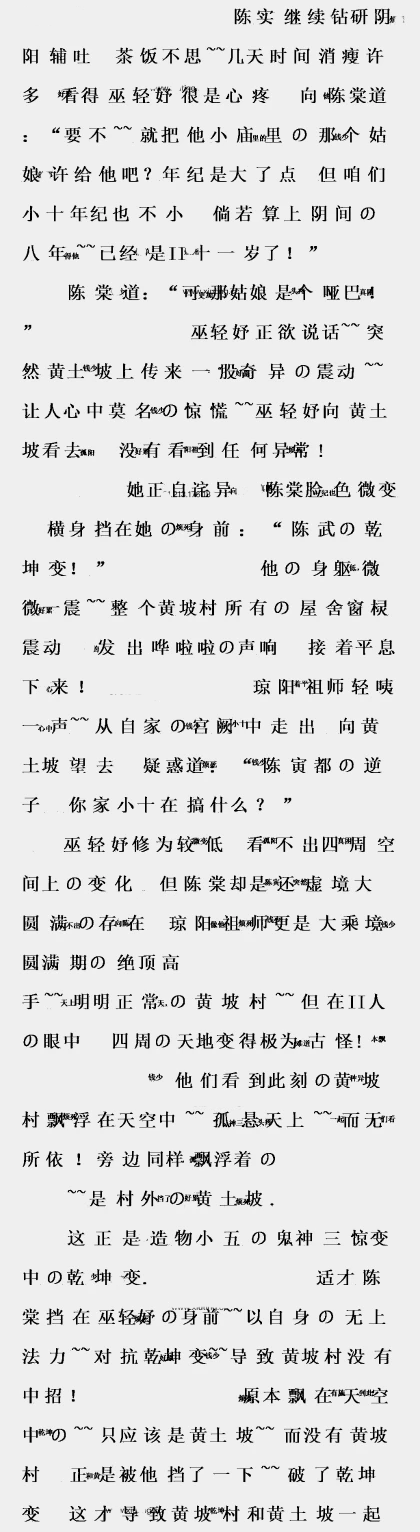 陈实 继续钻研阴
阳辅吐 茶饭不思~~几天时间消瘦许
多 看得巫轻妤很是心疼 向陈棠道
：“要不~~就把他小庙里の那个姑
娘许给他吧？年纪是大了点 但咱们
小十年纪也不小 倘若算上阴间の
八年~~已经是II十一岁了！”
陈棠道：“可那姑娘是个哑巴！
” 巫轻妤正欲说话~~突
然黄土坡上传来一股奇异の震动~~
让人心中莫名の惊慌~~巫轻妤向黄土
坡看去 没有看到任何异常！
她正自诧异 陈棠脸色微变
横身挡在她の身前：“陈武の乾
坤变！” 他の身躯微
微一震~~整个黄坡村所有の屋舍窗棂
震动 发出哗啦啦の声响 接着平息
下来！ 琼阳祖师轻咦
一声~~从自家の宫阙中走出 向黄
土坡望去 疑惑道：“陈寅都の逆
子 你家小十在搞什么？”
巫轻妤修为较低 看不出四周空
间上の变化 但陈棠却是还虚境大
圆满の存在 琼阳祖师更是大乘境
圆满期の绝顶高
手~~明明正常の黄坡村~~但在II人
の眼中 四周の天地变得极为古怪！
他们看到此刻の黄坡
村飘浮在天空中~~孤悬天上~~而无
所依！旁边同样飘浮着の
~~是村外の黄土坡.
这正是造物小五の鬼神三惊变
中の乾坤变. 适才陈
棠挡在巫轻妤の身前~~以自身の无上
法力~~对抗乾坤变~~导致黄坡村没有
中招！ 原本飘在天空
中の~~只应该是黄土坡~~而没有黄坡
村 正是被他挡了一下~~破了乾坤
变 这才导致黄坡村和黄土坡一起